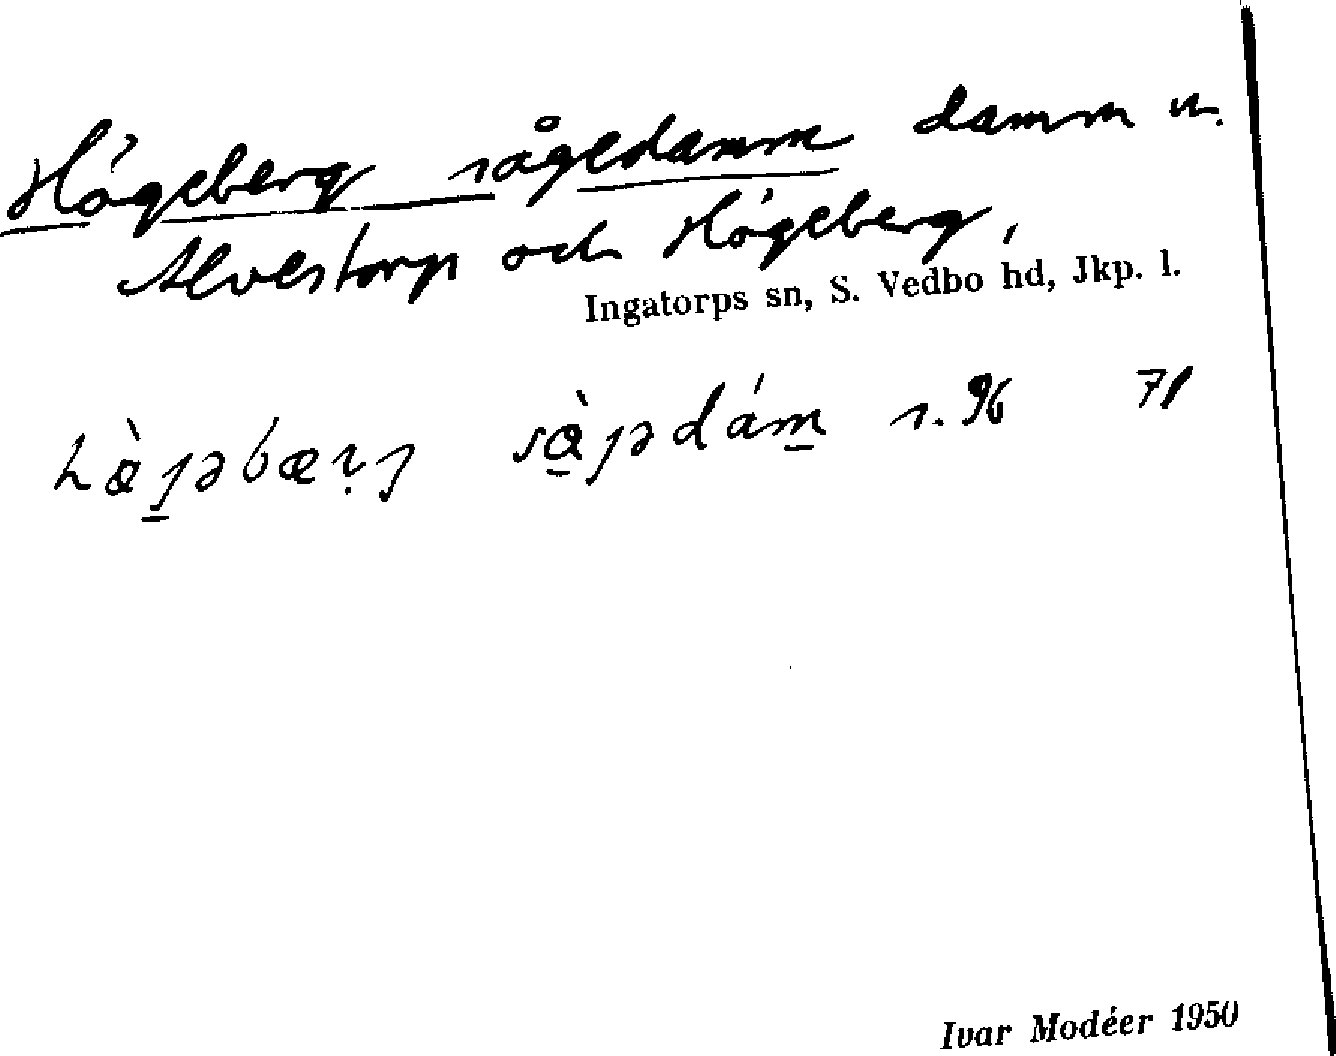 Högeberg sågedamm damm u.
Alvestorp och Högeberg,
Ingatorps sn, S. Vedbo hd, Jkp. l.
s. 96 71
Ivar Modéer 1950